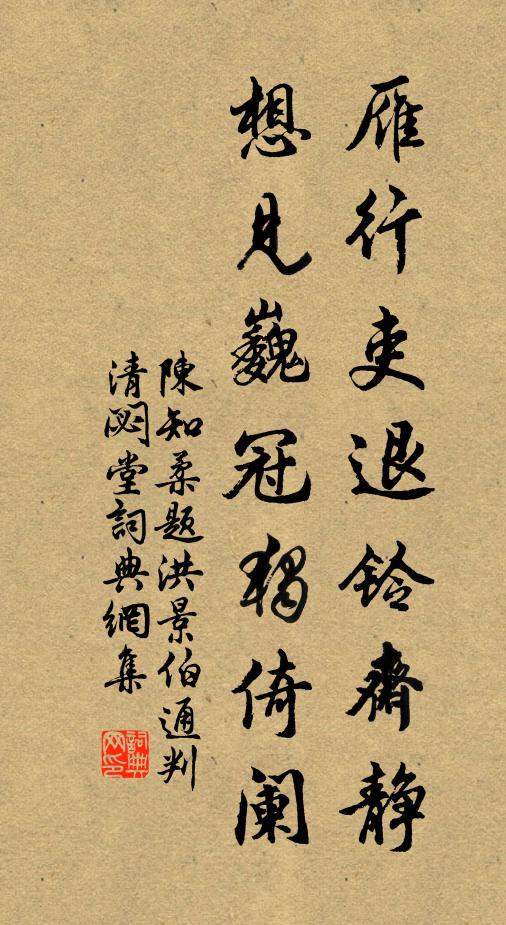 雁行吏退鈴齋静
想見巍冠獨倚闌
陳知柔題洪景伯通判
清閟堂詞典網集
詞典网印